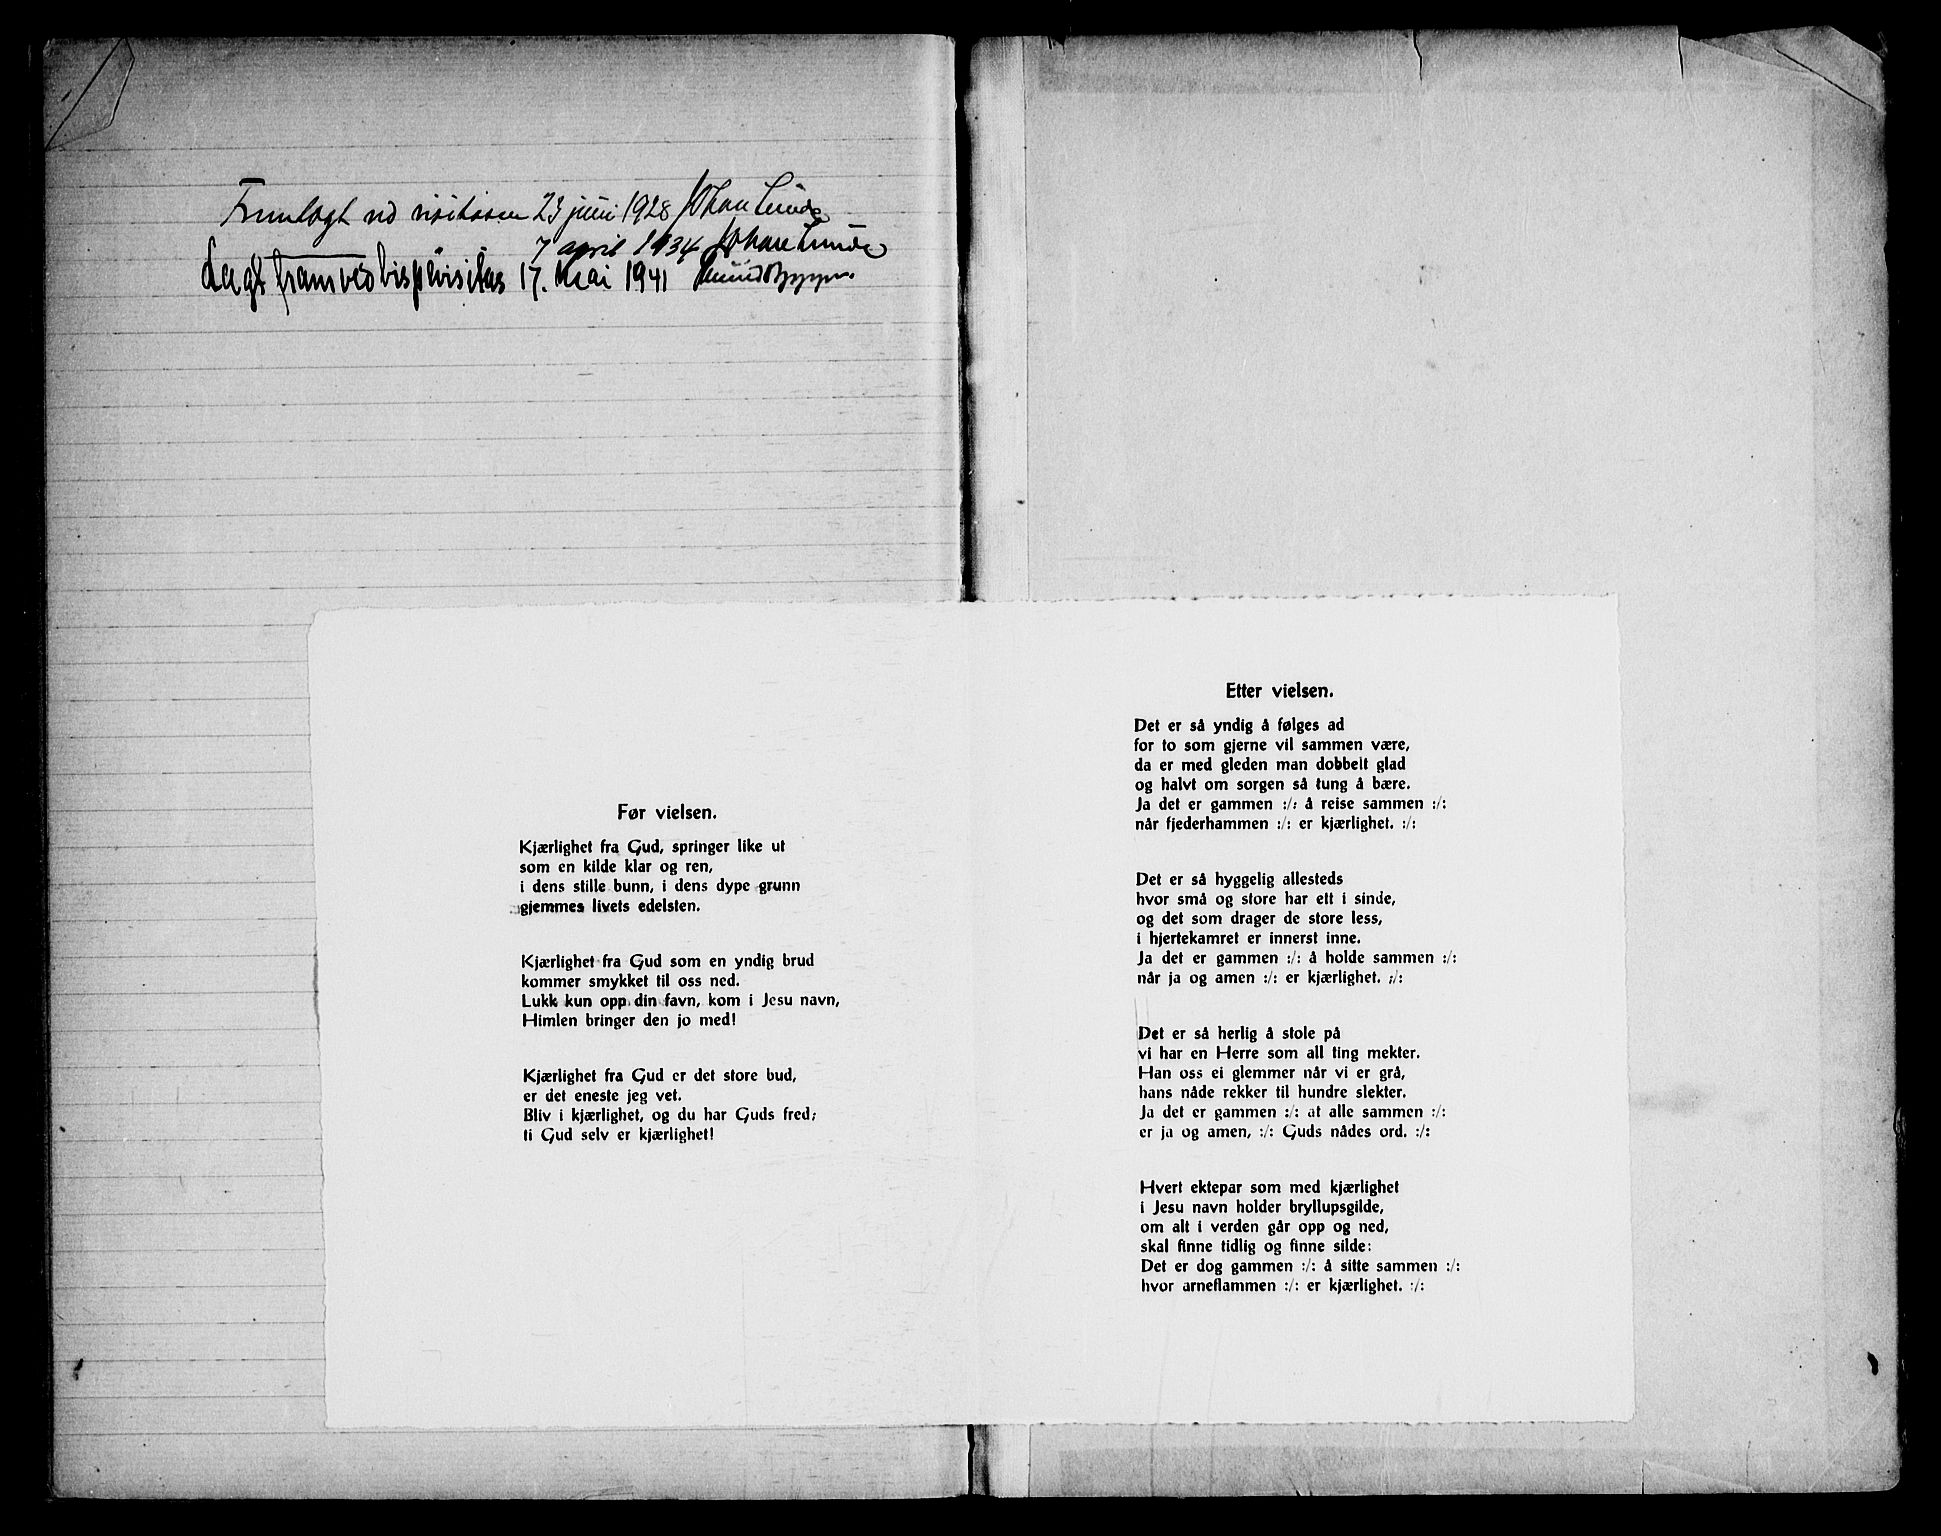 Fremlagt ved visitasen 23 juni 1928 Johan Lunde
7 april 1934 Johan Lunde
Lagt fram ved bispevisitas 17. mai 1941
Før vielsen.
Kjærlighet fra Gud, springer like ut
som en kilde klar og ren,
i dens stille bunn, i dens dype grunn
gjemmes livets edelsten.
Kjærlighet fra Gud som en yndig brud
kommer smykket til oss ned.
Lukk kun opp din favn, kom i Jesu navn,
Himlen bringer den jo med!
Kjærlighet fra Gud er det store bud,
er det eneste jeg vet.
Bliv i kjærlighet, og du har Guds fred;
ti Gud selv er kjærlighet!
Etter vielsen.
Det er så yndig å følges ad
for to som gjerne vil sammen være,
da er med gleden man dobbelt glad
og halvt om sorgen så tung å bære.
Ja det er gammen :/: å reise sammen :/:
når fjederhammen :/: er kjærlighet. :/:
Det er så hyggelig allesteds
hvor små og store har ett i sinde,
og det som drager de store less,
i hjertekamret er innerst inne.
Ja det er gammen :/: å holde sammen :/:
når ja og amen :/: er kjærlighet. :/:
Det er så herlig å stole på
vi har en Herre som all ting mekter.
Han oss ei glemmer når vi er grå,
hans nåde rekker til hundre slekter.
Ja det er gammen :/: at alle sammen :/:
er ja og amen, :/: Guds nådes ord. :/:
Hvert ektepar som med kjærlighet
i Jesu navn holder bryllupsgilde,
om alt i verden går opp og ned,
skal finne tidlig og finne silde:
Det er dog gammen :/: å sitte sammen :/:
hvor arneflammen :/: er kjærlighet. :/: